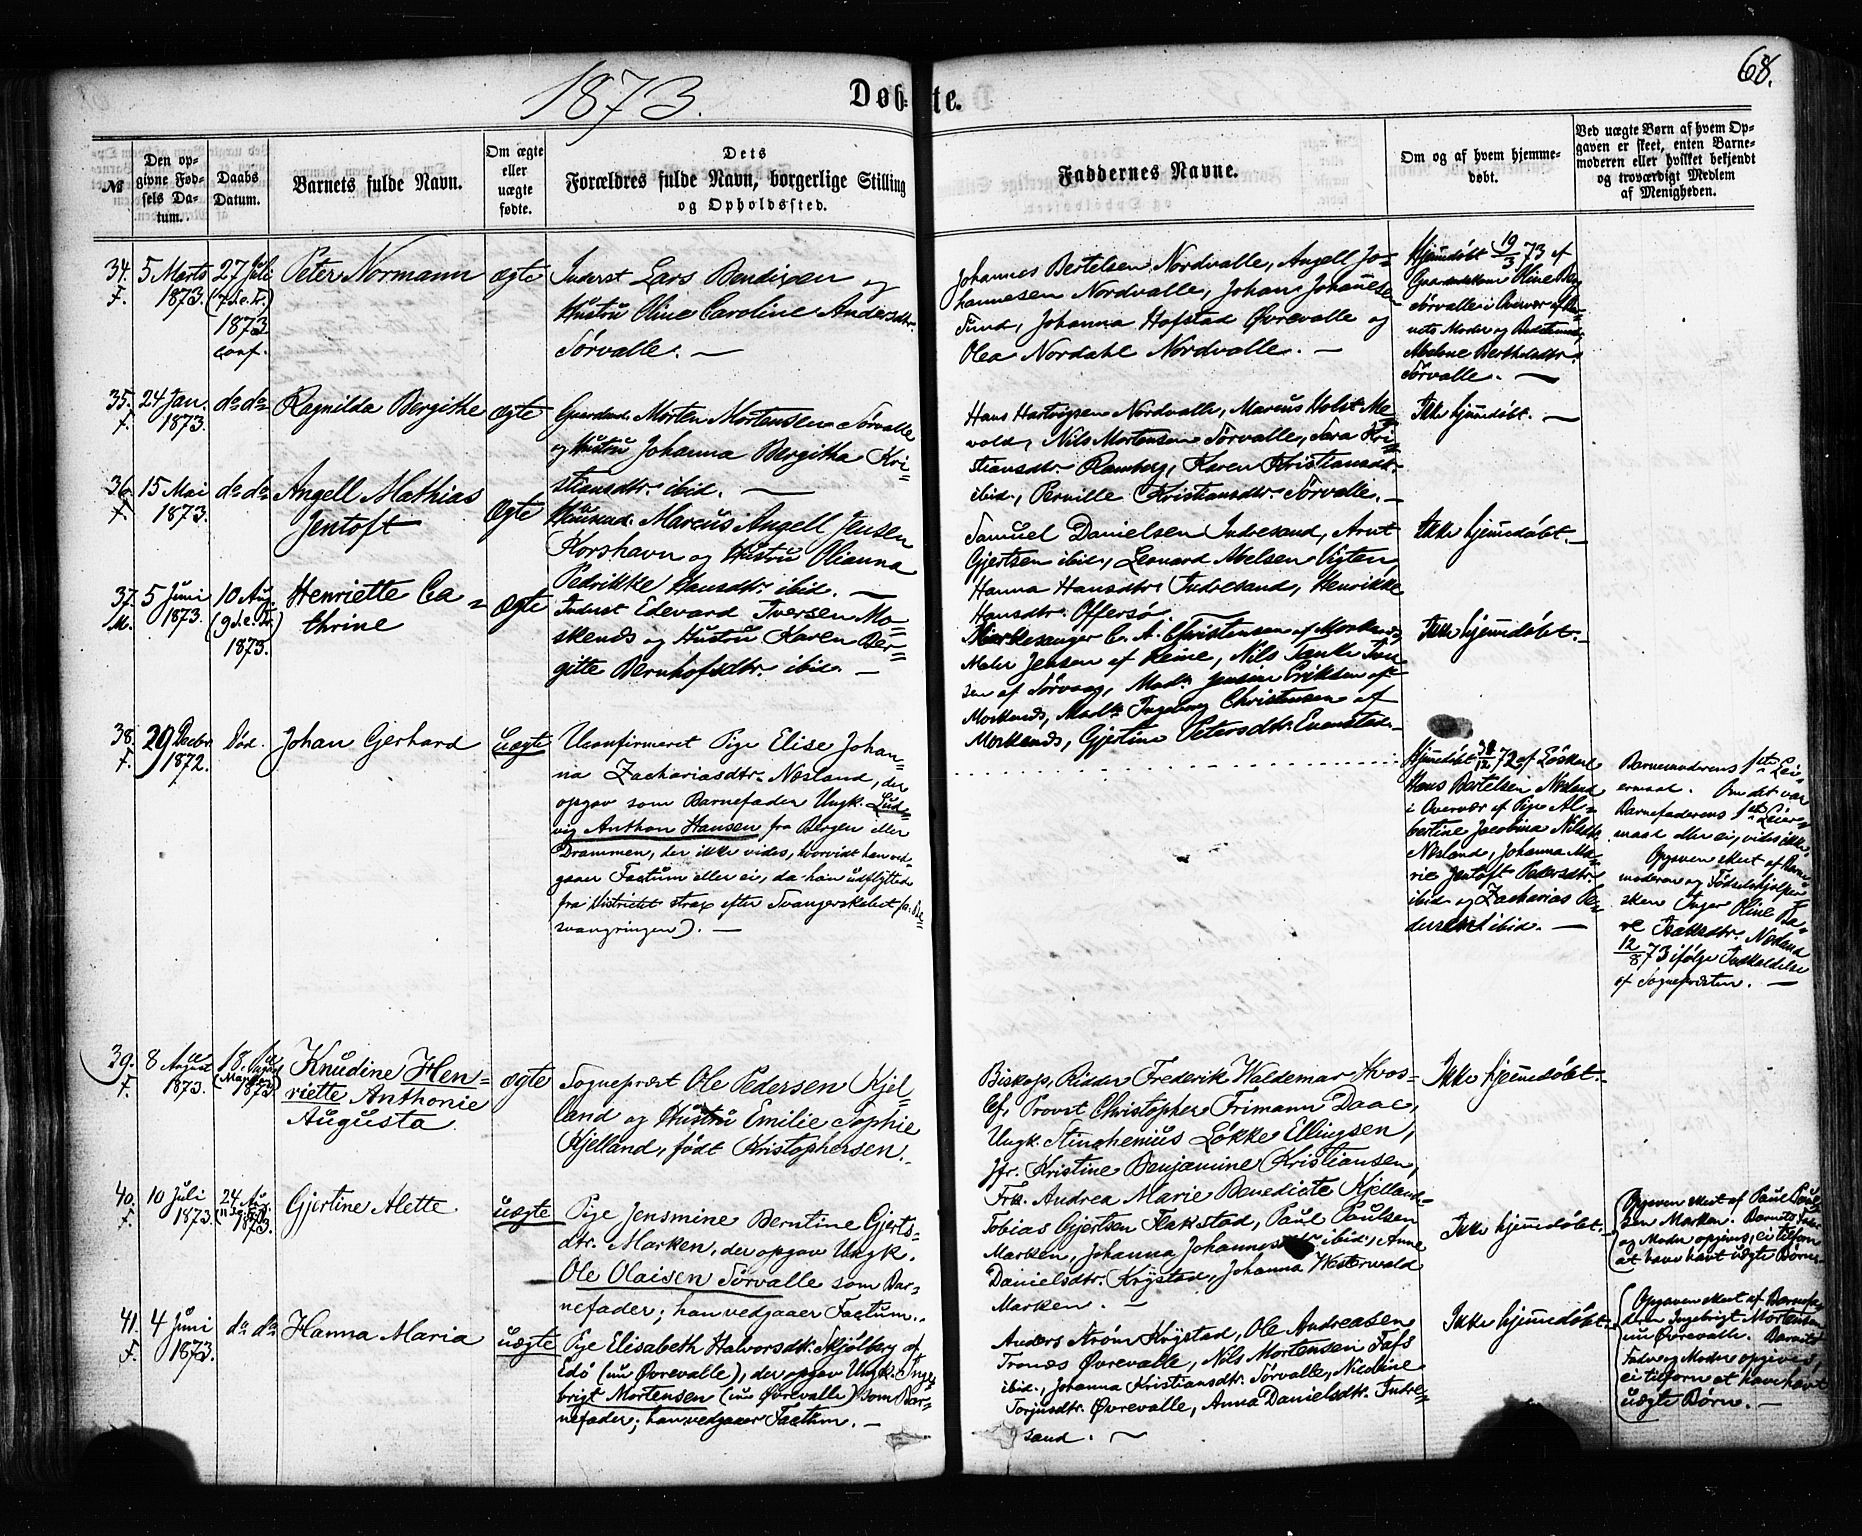 1873.
Døbte.
68.
№
Den op-
givne Fød-
sels Da-
tum.
Daabs
Datum.
Barnets fulde Navn.
Om ægte
eller
uægte
fødte.
Dets
Forældres fulde Navn, borgerlige Stilling
og Opholdssted.
Faddernes Navne.
Om og af hvem hjemme-
døbt.
Ved uægte Børn af hvem Op-
gaven er skeet, enten Barne-
moderen eller hvilket bekjendt
og troværdigt Medlem
af Menigheden.
34.
F.
5 Marts
1873.
27 Juli
(7 S. e. Tr.)
1873
conf.
Peter Normann
ægte
Inderst Lars Bendixen og
Hustru Oline Caroline Andersdtr.
Sørvalle. —
Johannes Bertelsen Nordvalle, Angell Jo-
hannesen Nordvalle, Johan Johannesen
Sund, Johanna Hofstad Øvrevalle og
Olea Nordahl Nordvalle. —
Hjemdøbt 19/3 73 af
Oline
Sørvalle i Overvær af Bar-
nets Moder og
Abelone Bertheldtr.
Sørvalle. —
35.
F.
24 Jan.
1873.
do do
Ragnilda Bergithe
ægte
Gaardmd. Morten Mortensen Sørvalle
og Hustru Johanna Bergitha Kri-
stiansdtr. ibid. —
Hans Hartvigsen Nordvalle, Marcus Holst Me-
vold, Nils Mortensen Sørvalle, Sara Kri-
stiansdtr. Ramberg, Karen Kristiansdtr.
ibid., Pernille Kristiansdtr. Sørvalle. —
Ikke hjemmdøbt. —
36.
F.
15 Mai
1873.
do do
Angell Mathias
Jentoft
ægte
Huusmd. Marcus Angell Jensen
Korshavn og Hustru Olianna
Pedrikke Hansdtr. ibid. —
Samuel Danielsen Indresand, Arnt
Gjertsen ibid., Leonard Abelsen Vigten,
Hanna Hansdtr. Indresand, Henrikke
Hansdtr. Offersø. —
Ikke hjemmdøbt. —
37.
M.
5 Juni
1873.
10 Aug.
(9 S. e. Tr.)
1873.
Henriette Ca-
thrine
ægte
Inderst Edevard Iversen Mo-
skenes og Hustru Karen Ber-
gitte Bernhofsdtr. ibid. —
Kirkesanger C. A. Christensen af Moskenes,
Maler Jensen af Reine, Nils Tanke Iver-
sen af Sørvaag, Mad. Jensine Eriksen af
Moskenes, Mad. Ingeborg Christensen af
Moskenes, Gjertine Petersdtr. Evenstad. —
Ikke hjemmdøbt. —
38.
F.
29 Decbr.
1872.
Død.
Johan Gerhard
Uægte
Uconfirmeret Pige Elise Johan-
na Zachariasdtr. Nesland, der
opgav som Barnefader Ungk. Lud-
vig Anthon Hansen fra Bergen eller
Drammen, der ikke vides, hvorvidt han ved-
gaaer Factum eller ei, da han udflyttede
fra Districtet strax efter Svangerskabet (o: Be-
svangringen). —
Hjemdøbt 30/12 72 af Løskarl
Hans Bertelsen Nesland
i Overvær af Pige Al-
bertine Jacobina Nilsdtr.
Nesland, Johanna Ma-
rie Jentoft Pedersdtr.
ibid. og Zacharias Pe-
dersen ibid. —
Barnemoderens 1ste Lei-
ermaal. Om det var
Barnefaderens 1ste Leier-
maal eller ei, vides ikke.
Opgaven skeet af Barne-
moderen og Fødselshjælper-
sken Inger Oline Ba-
re Isaksdtr. Nesland
12/8 73 ifølge Indkaldelse
af Sognepræsten. —
39.
F.
8 August
1873.
18 August
(Mandag)
1873
Knudine Hen-
riette Anthonie
Augusta
ægte
Sognepræst Ole Pedersen Kjel-
land og Hustru Emilie Sophie
Kjelland, født Kristophersen.
Biskop, Ridder Frederik Waldemar Hvos-
lef, Provst Christopher Frimann Daae,
Ungk. Stinghenius Løkke Ellingsen,
Jfr. Kristine Benjamine Kristiansen,
Frk. Andrea Marie Benedicte Kjelland. —
Ikke hjemmdøbt. —
40.
F.
10 Juli
1873.
24 Aug.
(11 S. e. Tr.)
1873.
Gjertine Alette
uægte
Pige Jensmine Berntine Gjerts-
dtr. Marken, der opgav Ungk.
Ole Olaisen Sørvalle som Bar-
nefader; han vedgaaer Factum.
Tobias Gjertsen Flakstad, Paul Paulsen
Marken, Johanna ibid., Anne
Danielsdtr. Krystad, Johanna Westerwald
Marken. —
Ikke hjemmdøbt. —
Opgaven skeet af Paul Paul-
sen Marken. Barnets Fader
og Moder opgives, ei tilforn
at have havt uægte Børn. —
41.
F.
4 Juni
1873.
do do
Hanna Maria
uægte
Pige Elisabeth Halvorsdtr. Mjølberg af
Edø (nu Øvrevalle), der opgav Ungk. Inge-
brigt Mortensen (nu Øvrevalle) som Bar-
nefader; han vedgaaer Factum. —
Anders Strøm Krystad, Ole Andreasen
Tronæs Øvrevalle, Nils Mortensen
ibid., Johanna Kristiansdtr. Sørvalle, Nicoline
Torjusdtr. Øvrevalle, Anna Danielsdtr. Indre-
sand. —
Ikke hjemmdøbt. —
Opgaven skeet af Barnefa-
deren Ingebrigt Mortensen
nu Øvrevalle. Barnets
Fader og Moder opgives,
ei tilforn at have havt
uægte Børn. —